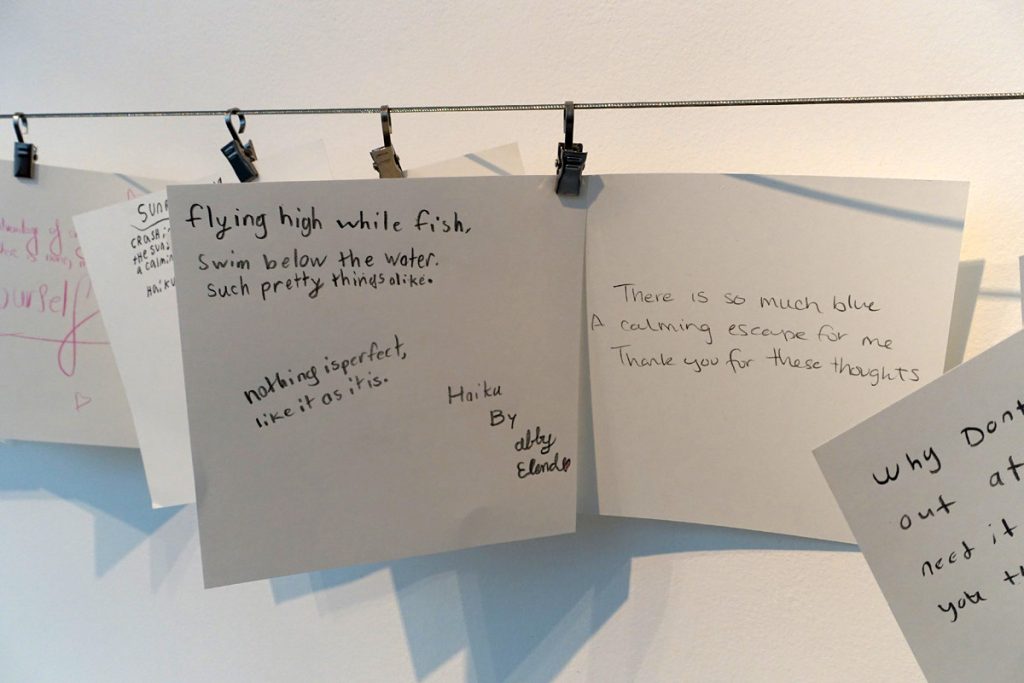 ourself
SUN
CRASHI
the SUN
a calmin
HAIKU
flying high while fish,
swim below the water.
such pretty things alike.
nothing is perfect,
like it as it is.
Haiku
By
abby
There is so much blue
A calming escape for me
Thank you for these thoughts
why Dont
out at
need it
you th